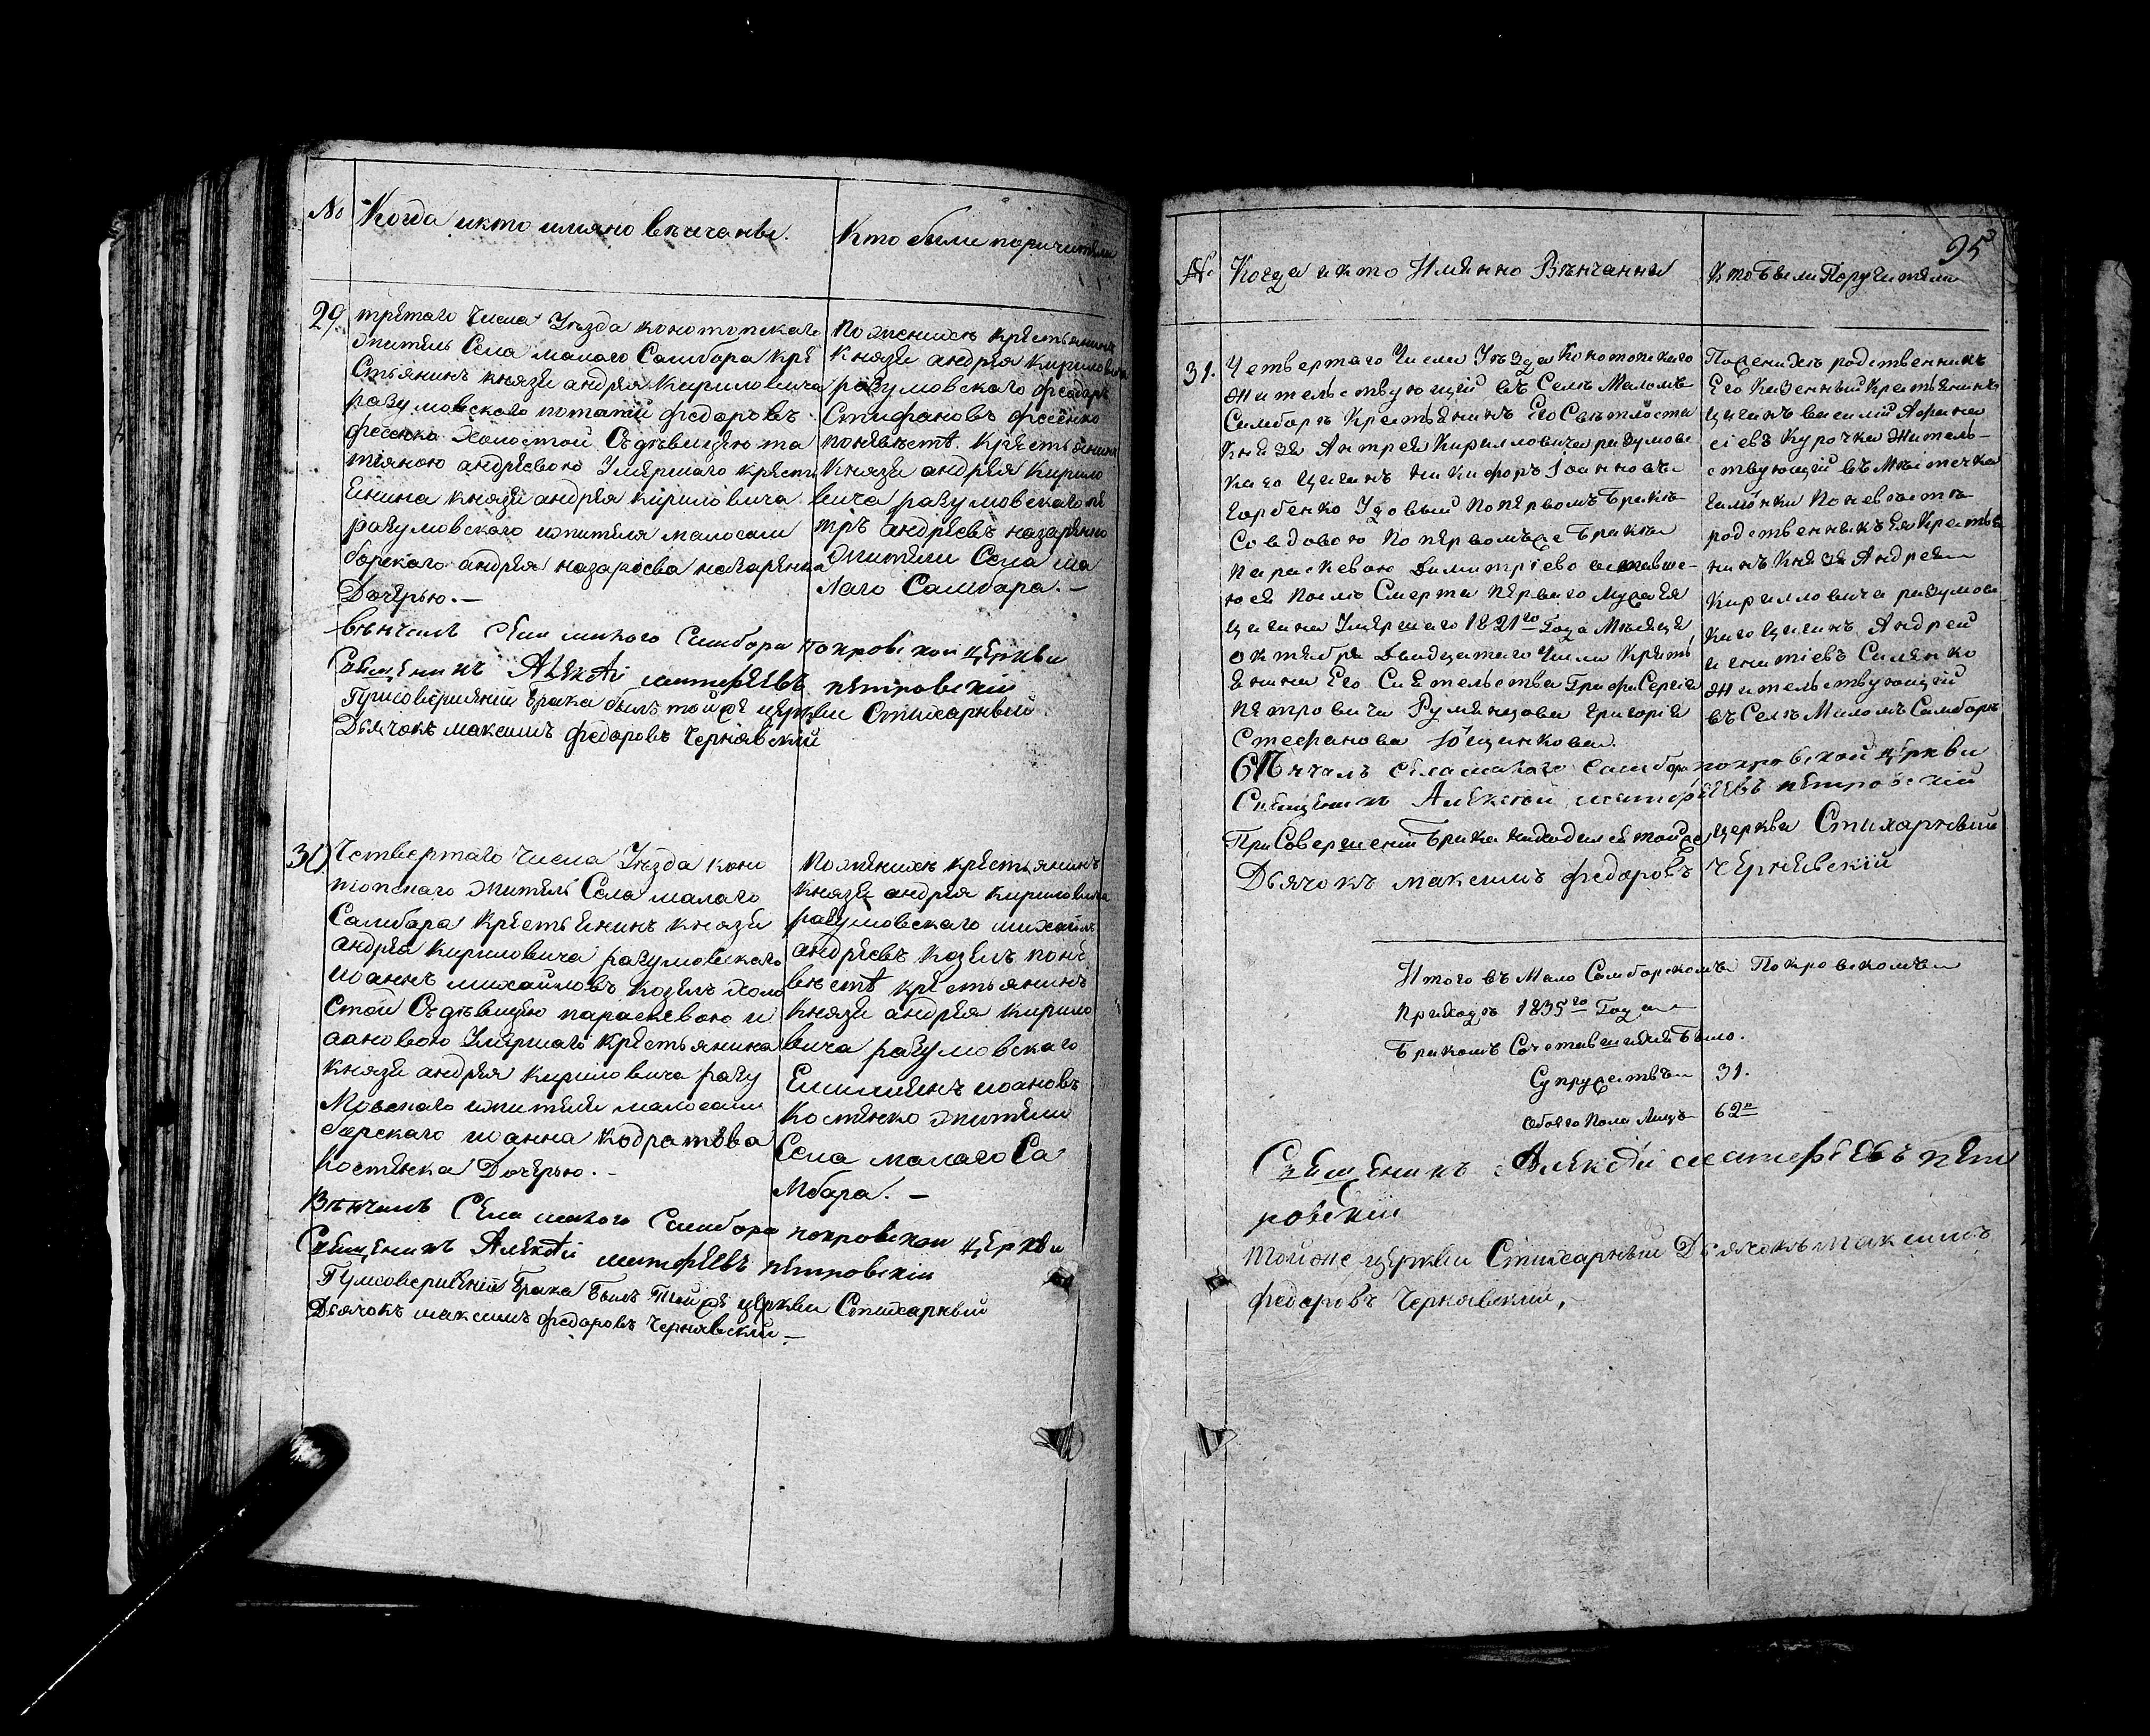 № Когда икто имяно венчаные. Кто были поручители
29. третаго числа Уезда конотопскаго
житель Села малаго Самбора кре
стьянинъ князя андрея Кириловича
разумовскаго потапій федоровъ
фесенко холостой Съдѣвицею та
тіяною андреевою Умершаго кресть
енина князя андрея кириловича
разумовскаго жителя малосам
борскаго андрея назарова назаренка
Дочерью.—
По женихѣ крестьянинъ
князя андрея Кириловича
разумовскаго федоръ
Стифановъ фесенко
поневѣсте. Крестьянинъ
Князя андрея Кирило
вича разумовскаго пе
тръ андреевъ назаренко
жители Села ма
лаго Самбора.—
вѣнчалъ села малого Самбора покровской церкви
Священникъ Алексѣй матфеевъ петровскій
Присовершеній брака былъ тойже церкви Стихарный
Дьячокъ максимъ федоровъ Чернявскій
30. Четвертаго числа Уезда коно
топскаго житель Села малаго
Самбора крестьенинъ князя
андрея кириловича разумовскаго
иоаннъ михайловъ козелъ холо
стой Съдѣвицею параскевою и
аановою Умершаго крестьянина
князя андрея кириловича разу
мовскаго жителя малосам
борскаго иоанна кодратова
костенка Дочерью.—
по женихѣ крестьянинъ
князя андрея кириловича
разумовскаго михаилъ
андреевъ козелъ поне
вестѣ крестьянинъ
князя андрея кирило
вича разумовскаго
Емилиянъ иоановъ
костенко жители
Села малаго Са
мбора.—
Вѣнчалъ Села малого Самбора покровской церкви
Священникъ Алексѣй матфеевъ петровскій
Присовершеній брака былъ Тойже церкви Стихарный
Дьячокъ максимъ федоровъ Чернявскій—
95
№ Когда икто Имянно Вѣнчанны Кто Были Поручители
31. Четвертаго Числа Уѣзда Конотопскаго
жительствующій въ Селѣ Маломъ
Самборѣ Крестьянинъ Его Светлости
Князя Антрея Кирилловича разумовс
каго Цыганъ Никифоръ Іоанновъ
Горбенко Удовый Попервомъ Бракѣ
Совдовою Попервомъже Бракѣ
параскевою Димитріево аставше-
юся После Смерти перваго Мужа ея
Цыгана Умершаго 1821го Года Месяца
октября Двадцатаго Числа Кресть
янина Его Сиятельства Графа Сергея
Петровича Румянцова григорія
Стефанова
Поженихѣ родственникъ
Его Казенный Крестьянинъ
Цыганъ василій Афана
сіевъ Курочка Житель-
ствующій въ Мѣстечка
Поневѣстѣ
родственникъ ея Крестья
нинъ Князя Андрея
Кирилловича разумовс
каго Цыганъ Андрей
игнатіевъ Силенко
жительствующій
въ Селѣ Маломъ Самборѣ
Вѣнчалъ села малого самбора покровской церкви
Священникъ Алексѣй матфеевъ петровскій
ПриСовершеніи Брака находился тойже церкви Стихарный
Дьячокъ максимъ федоровъ Чернявскій
Итого въ Мало Самборскомъ Покровскомъ
приходѣ 1835го Года
Бракомъ Сочетавшихся Было.
Супружествъ 31.
Обоего Пола Лицъ 62.
Священникъ Алексѣй матфеевъ пет
ровскій
тойже церкви Стихарный Дьячокъ максимъ
федоровъ Чернявскій.—